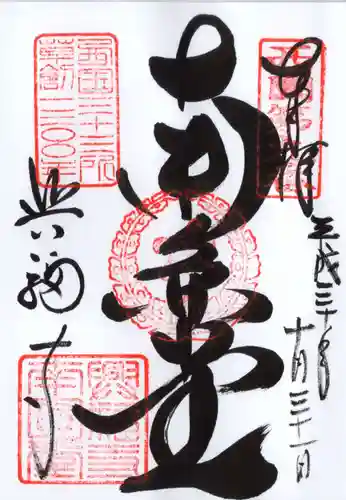 奉拝
平成三十年
十月三十一日
南円堂
興福寺
西國三十三所
草創一三〇〇年
興福寺
南圓堂